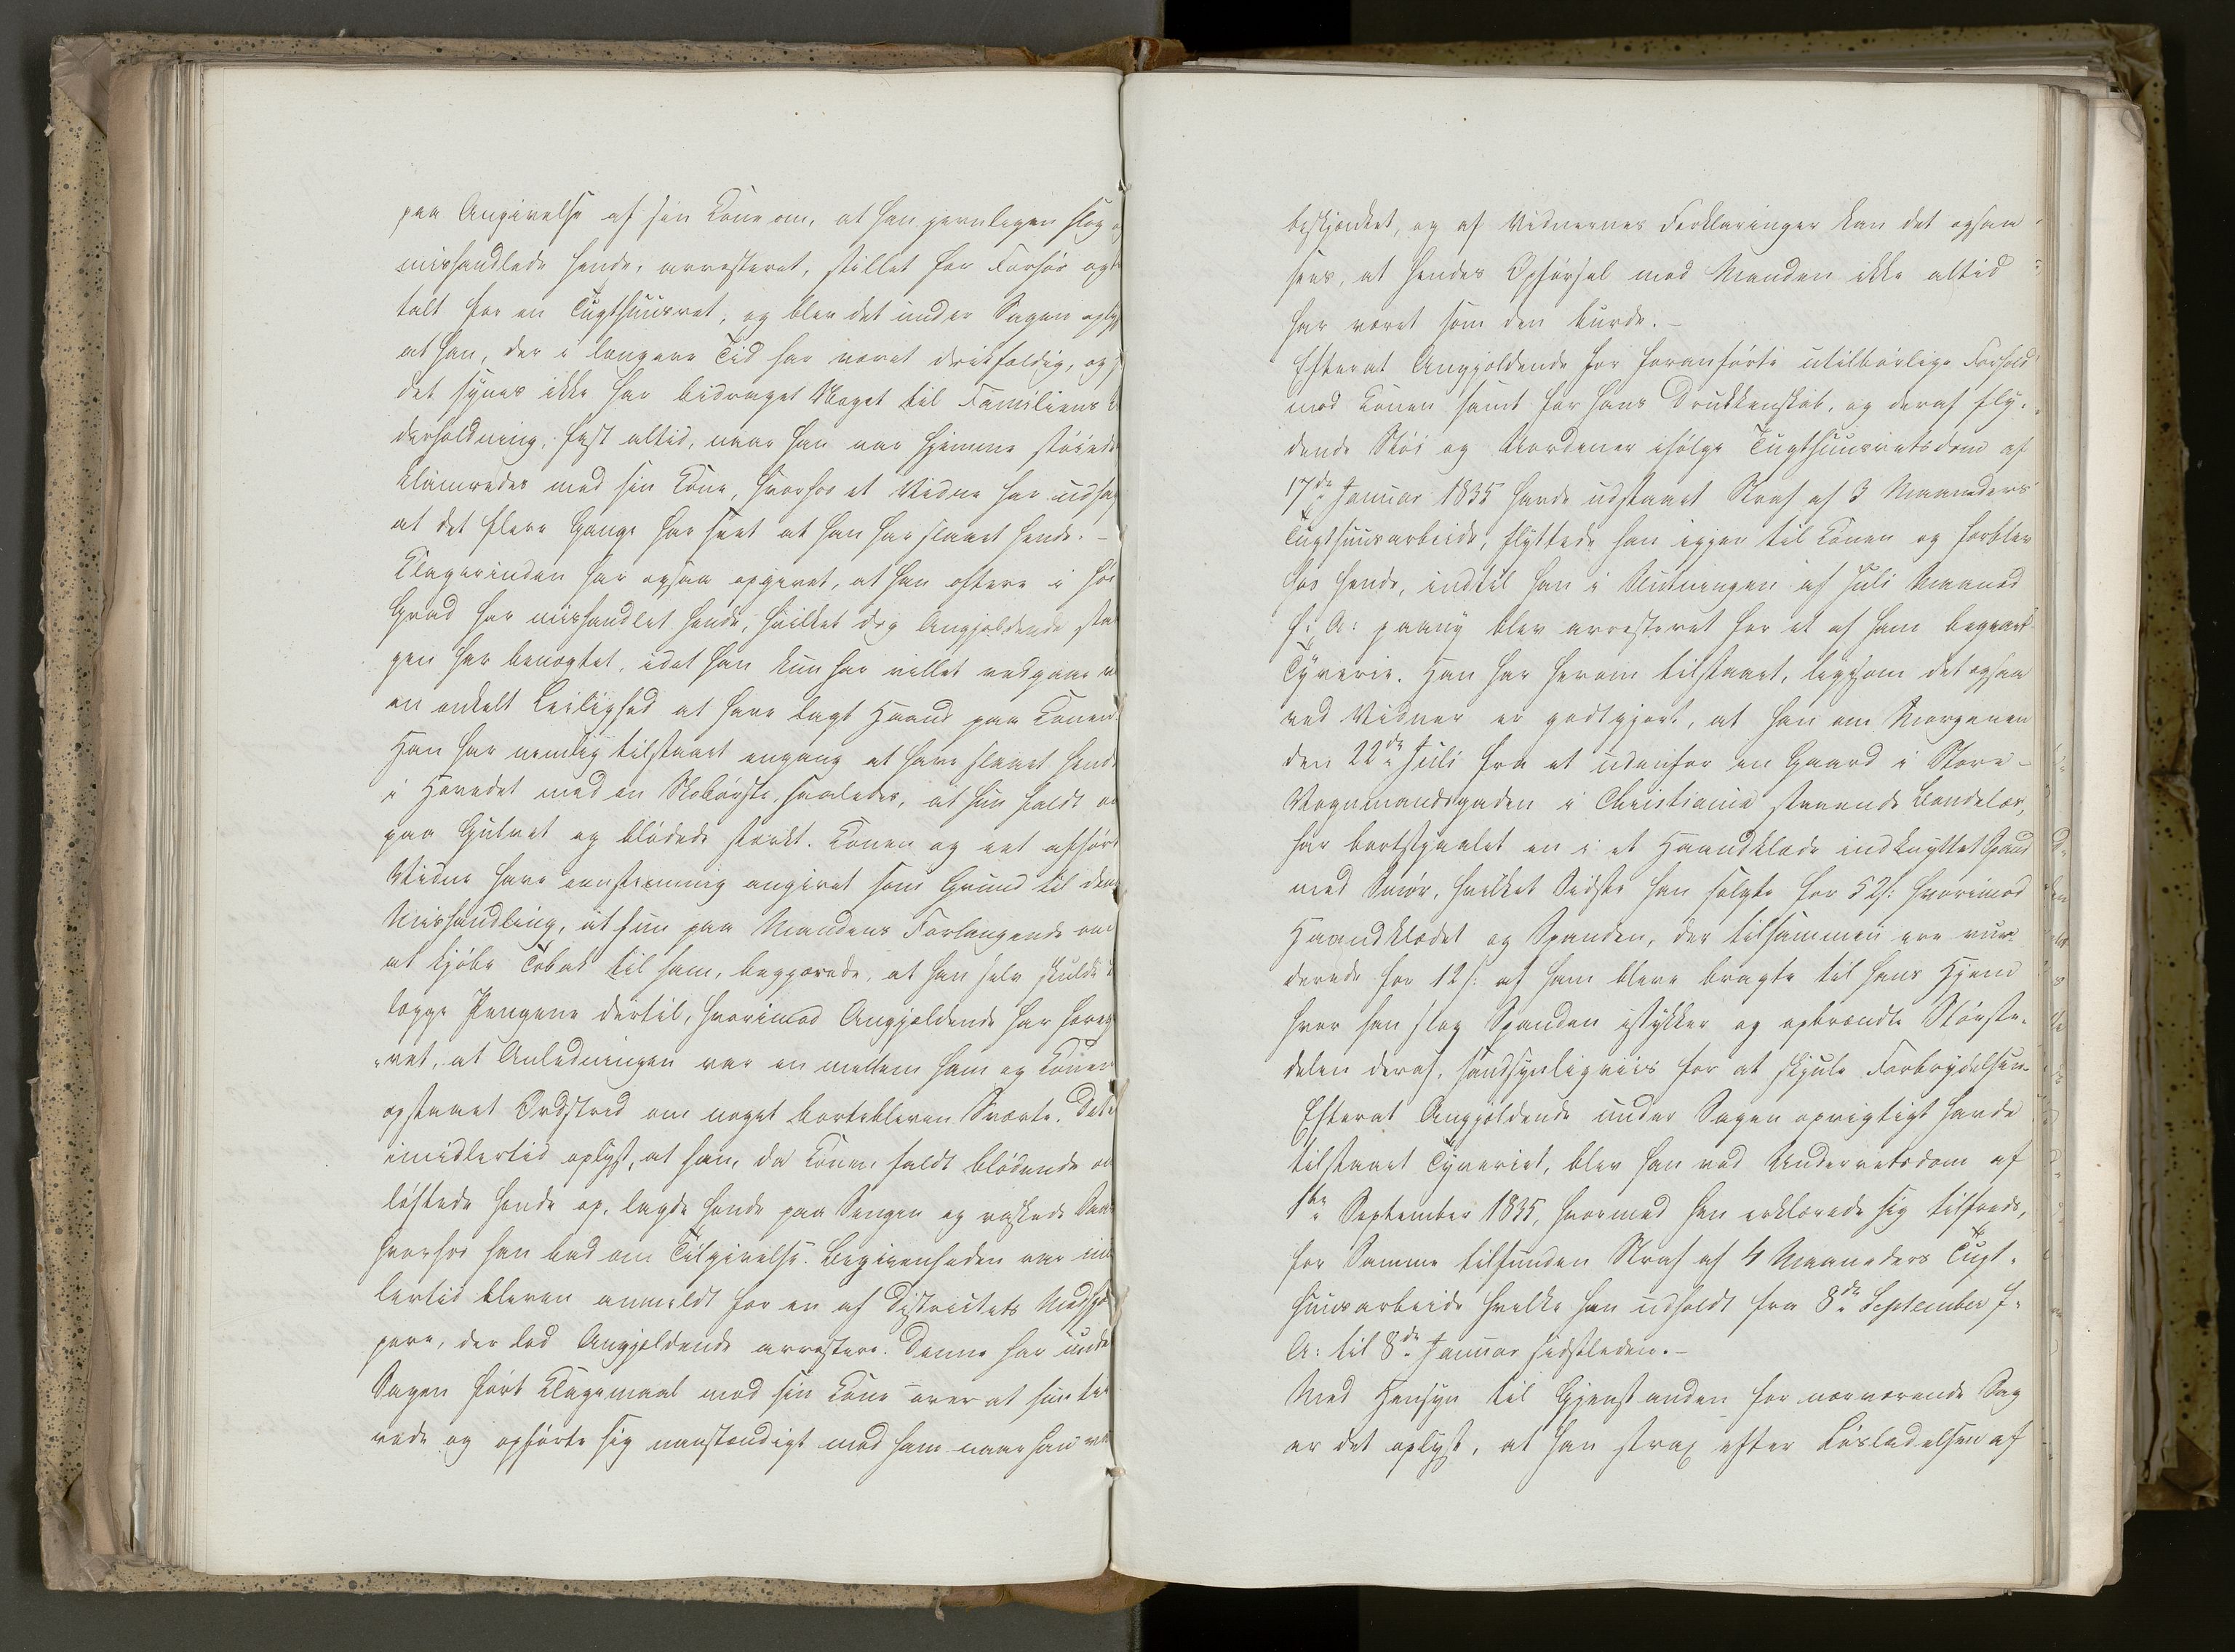 paa Angivelse af sin Kone om, at han jevnligen slog og
mishandlede hende, arresteret, stillet for Forhør og
talt for en Tugthuusret, og blev det under Sagen oplyst
at han, der i længere Tid har været drikfældig, og
det synes ikke har bidraget Noget til Familiens
derholdning, fast altid, naar han var hjemme støiede
klamredes med sin Kone, hvorhos et Vidne har udsagt
at det flere Gange har seet at han har slaaet hende. –
Klagerinden har ogsaa opgivet, at han oftere i høi
Grad har mishandlet hende, hvilket dog Angjældende sta
gen har benægtet, idet han kun har villet vedgaae v
en enkelt Leilighed at have lagt Haand paa Konen.
Han har nemlig tilstaaet engang at have slaaet hende
i Hovedet med en Skobørste, saaledes, at hun faldt om
paa Gulvet og blødede stærkt. Konen og eet afhørt
Vidne have eenstemmig angivet som Grund til denne
Mishandling, at hun paa Mandens Forlangende om
at kjøbe Tobak til ham, begjærede, at han selv skulde
lægge Pengene dertil, hvorimod Angjældende har foreg
vet, at Anledningen var en mellem ham og Konen
opstaaet Ordstrid om noget bortebleven Sværte. Det
imidlertid oplyst, at han, da Konen faldt blødende om
løftede hende op, lagde hende paa Sengen og vaskede Saa
hvorhos han bad om Tilgivelse. Begivenheden var imid
lertid bleven anmeldt for en af Districtets Medhjæl
pere, der lod Angjældende arrestere. Denne har under
Sagen ført Klagemaal mod sin Kone over at hun ta
rede og opførte sig uanstændigt mod ham naar han var
beskjænket, og af Vidnernes Forklaringer kan det ogsaa
sees, at hendes Opførsel mod Manden ikke altid
har været som den burde. –
Efterat Angjældende for foranførte utilbørlige Forhold
mod Konen samt for hans Drukkenskab, og deraf fly-
dende Støi og Uordener ifølge Tugthuusretsdom af
17de Januar 1835 havde udstaaet Straf af 3 Maaneders
Tugthuusarbeide, flyttede han igjen til Konen og forblev
hos hende, indtil han i Slutningen af Juli Maaned
f: A: paany blev arresteret for et af ham begaaet
Tyverie. Han har herom tilstaaet, ligesom det ogsaa
ved Vidner er godtgjort, at han om Morgenen
den 22de Juli fra et udenfor en Gaard i Store-
Vognmandsgaden i Christiania staaende Bondelæs,
har bortstjaalet en i et Haandklæde indknyttet Spand
med Smør, hvilket Sidste han solgte for 52 s: hvorimod
Haandklædet og Spanden, der tilsammen ere vur-
derede for 12 s: af ham bleve bragte til hans Hjem
hvor han slog Spanden istykker og opbrændte Største-
delen deraf, sandsynligviis for at skjule Forbrydelsen.
Efterat Angjældende under Sagen oprigtigt havde
tilstaaet Tyveriet, blev han ved Underretsdom af
1ste September 1835, hvormed han erklærede sig tilfreds,
for Samme tilfunden Straf af 4 Maaneders Tugt-
huusarbeide hvilke han udholdt fra 8de September f:
A: til 8de Januar sidstleden. –
Med Hensyn til Gjenstanden for nærværende Sag
er det oplyst, at han strax efter Løsladelsen af